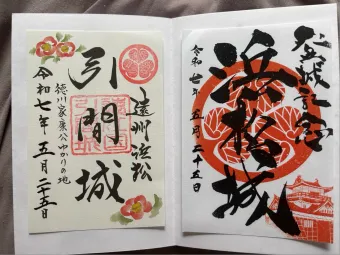 登城記念
浜松城
令和七年五月二十五日
遠州浜松
引間城
徳川家康公ゆかりの地
令和七年五月二十五日